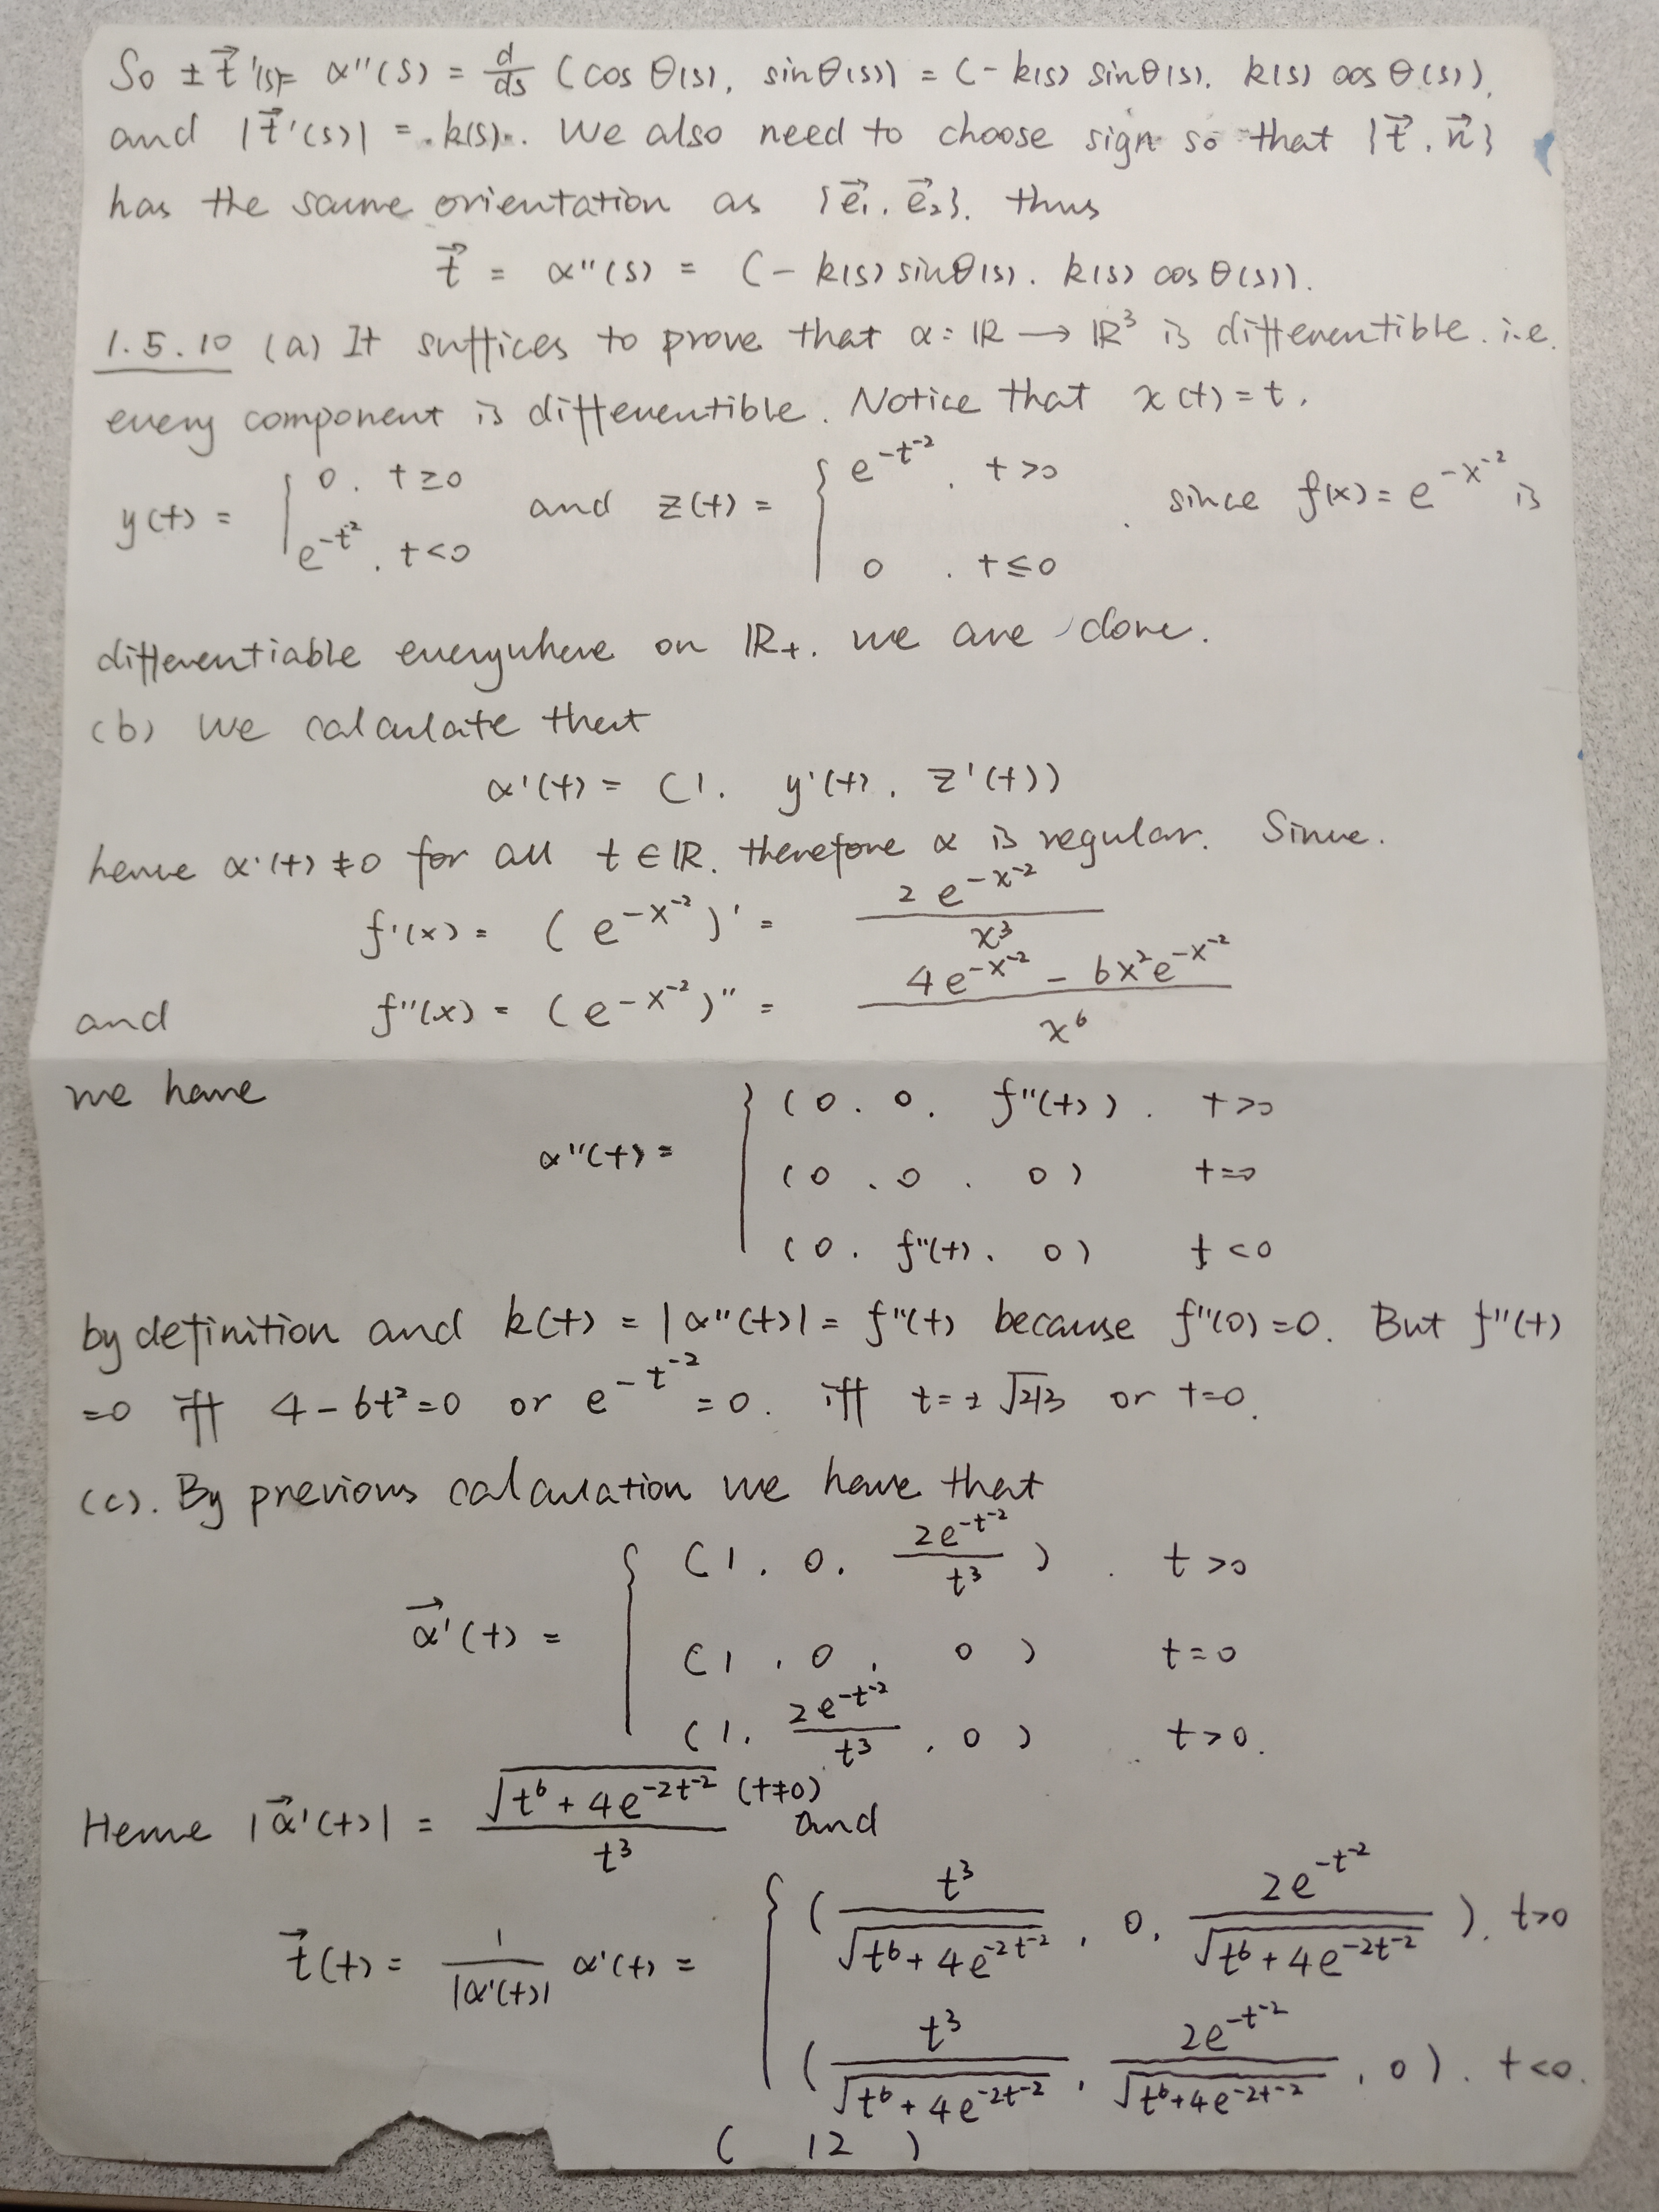 So ± t⃗'(s) = α''(s) = d/ds (cos θ(s), sin θ(s)) = (- k(s) sin θ(s), k(s) cos θ(s)),
and |t⃗'(s)| = k(s). We also need to choose sign so that {t⃗, n⃗}
has the same orientation as {e⃗₁, e⃗₂}. thus
t⃗ = α''(s) = (- k(s) sin θ(s), k(s) cos θ(s)).
1.5.10 (a) It suffices to prove that α: ℝ → ℝ³ is differentible. i.e.
every component is differentible. Notice that x(t) = t,
y(t) = { 0, t ≥ 0; e^{-t^{-2}}, t < 0 and z(t) = { e^{-t^{-2}}, t > 0; 0, t ≤ 0. since f(x) = e^{-x^{-2}} is
differentiable everywhere on ℝ₊. we are done.
(b) we calculate that
α'(t) = (1, y'(t), z'(t))
hence α'(t) ≠ 0 for all t ∈ ℝ. therefore α is regular. Since.
f'(x) = (e^{-x^{-2}})' = 2e^{-x^{-2}} / x³
and f''(x) = (e^{-x^{-2}})'' = (4e^{-x^{-2}} - 6x²e^{-x^{-2}}) / x⁶
we have
α''(t) = { (0, 0, f''(t)), t > 0
(0, 0, 0) t = 0
(0, f''(t), 0) t < 0
by definition and k(t) = |α''(t)| = f''(t) because f''(0) = 0. But f''(t)
= 0 iff 4 - 6t² = 0 or e^{-t^{-2}} = 0. iff t = ± √2/3 or t = 0.
(c). By previous calculation we have that
α⃗'(t) = { (1, 0, 2e^{-t^{-2}} / t³), t > 0
(1, 0, 0) t = 0
(1, 2e^{-t^{-2}} / t³, 0) t > 0.
Hence |α⃗'(t)| = √(t⁶ + 4e^{-2t^{-2}}) / t³ (t ≠ 0) and
t⃗(t) = 1/|α'(t)| α'(t) = { (t³ / √(t⁶ + 4e^{-2t^{-2}}), 0, 2e^{-t^{-2}} / √(t⁶ + 4e^{-2t^{-2}})), t > 0
(t³ / √(t⁶ + 4e^{-2t^{-2}}), 2e^{-t^{-2}} / √(t⁶ + 4e^{-2t^{-2}}), 0), t < 0.
( 12 )